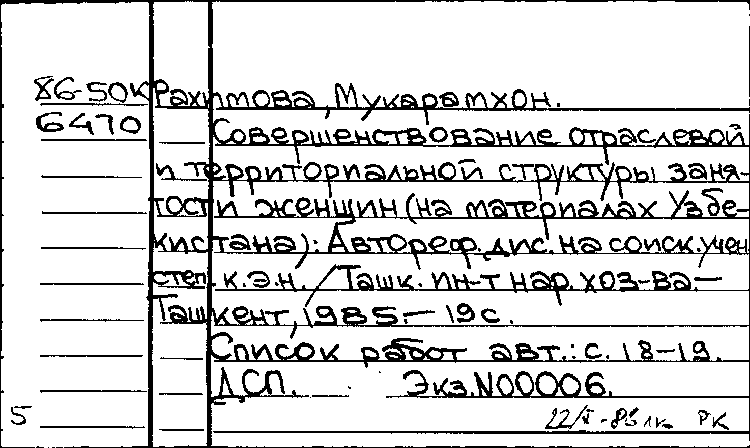 86-50К Рахимова, Мукарамхон.
6470 Совершенствование отраслевой
и территориальной структуры заня-
тости женщин (на материалах Узбе-
кистана): Автореф. дис. на соиск. учен.
степ. к.э.н. / Ташк. ин-т нар. хоз-ва.-
Ташкент, 1985.- 19 с.
Список работ авт.: с. 18-19.
ДСП. Экз. N00006.
5 РК